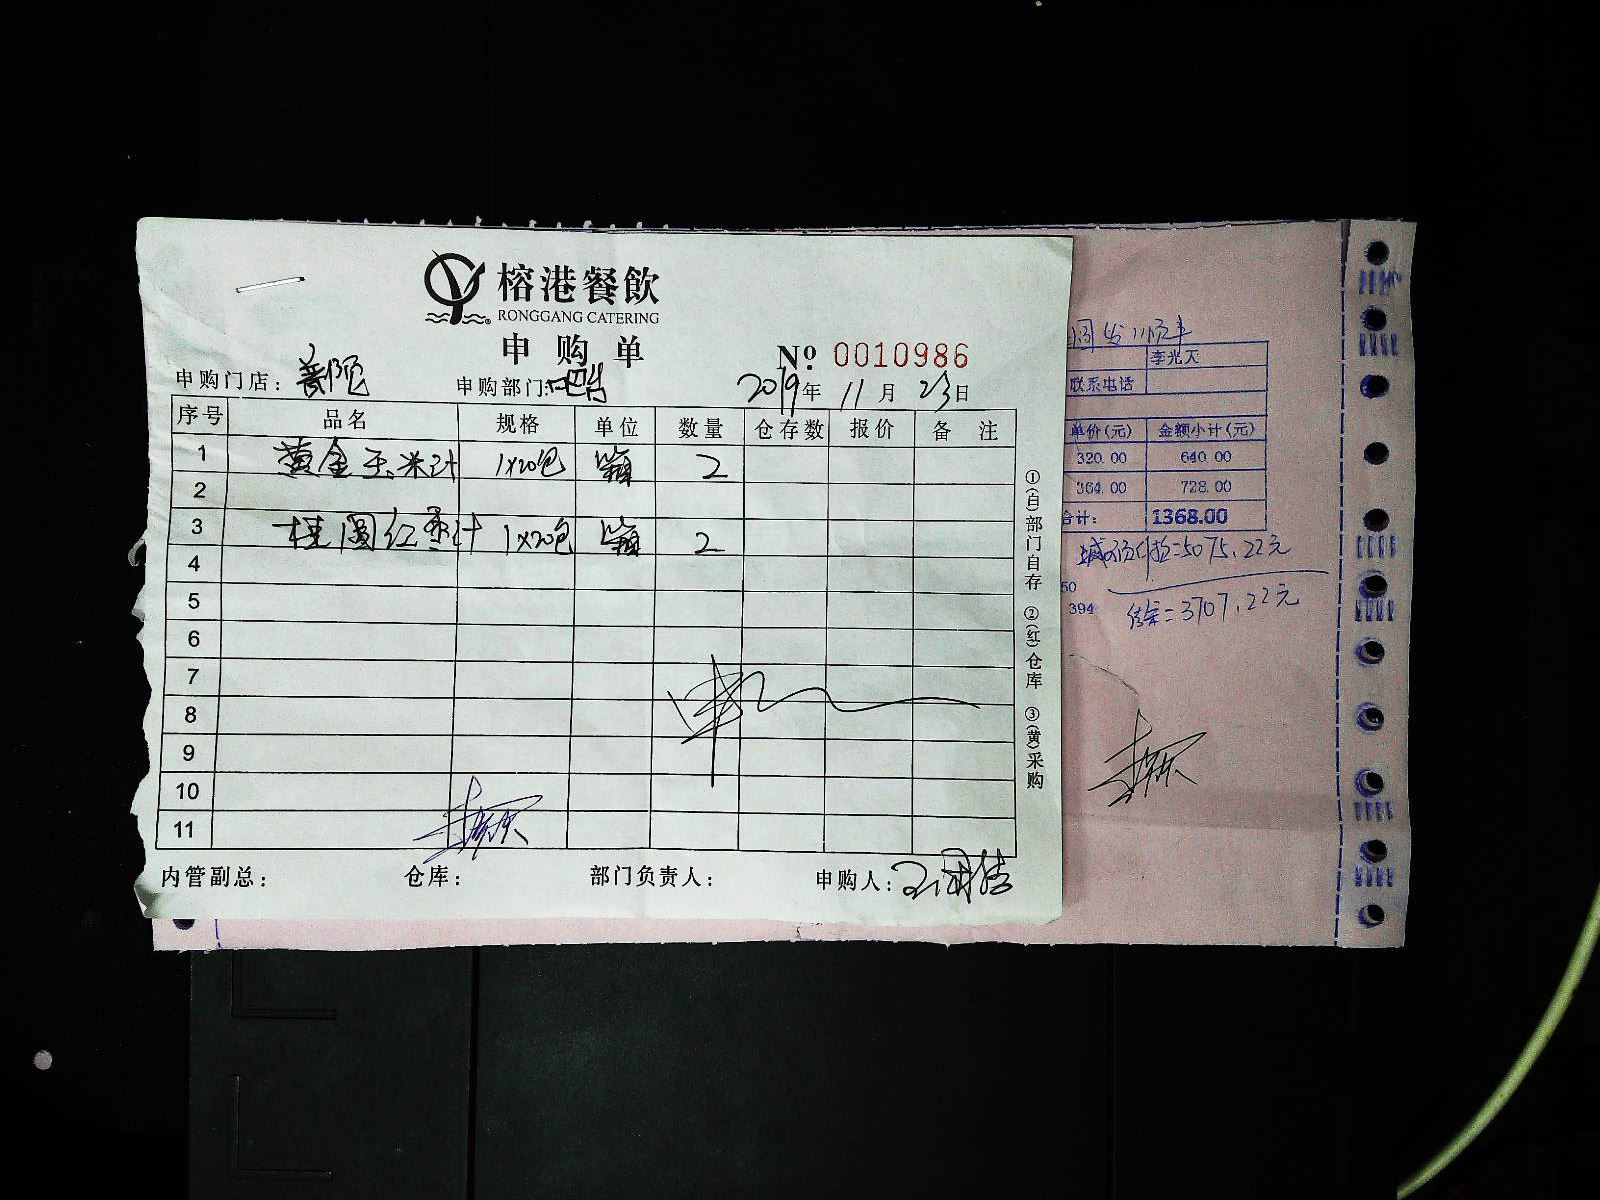 榕港餐飲
RONGGANG CATERING
申购单
Nº 0010986
申购门店: 普陀 申购部门: 吧台 2019年 11月 23日
序号 品名 规格 单位 数量 仓存数 报价 备注
1 黄金玉米汁 1×20包 箱 2
2
3 桂圆红枣汁 1×20包 箱 2
4
5
6
7
8
9
10
11
内管副总: 仓库: 部门负责人: 申购人:
①(白)部门自存 ②(红)仓库 ③(黄)采购
李光天
联系电话
单价(元) 金额小计(元)
320.00 640.00
364.00 728.00
合计: 1368.00
=5075.22元
50
394
=3707.22元